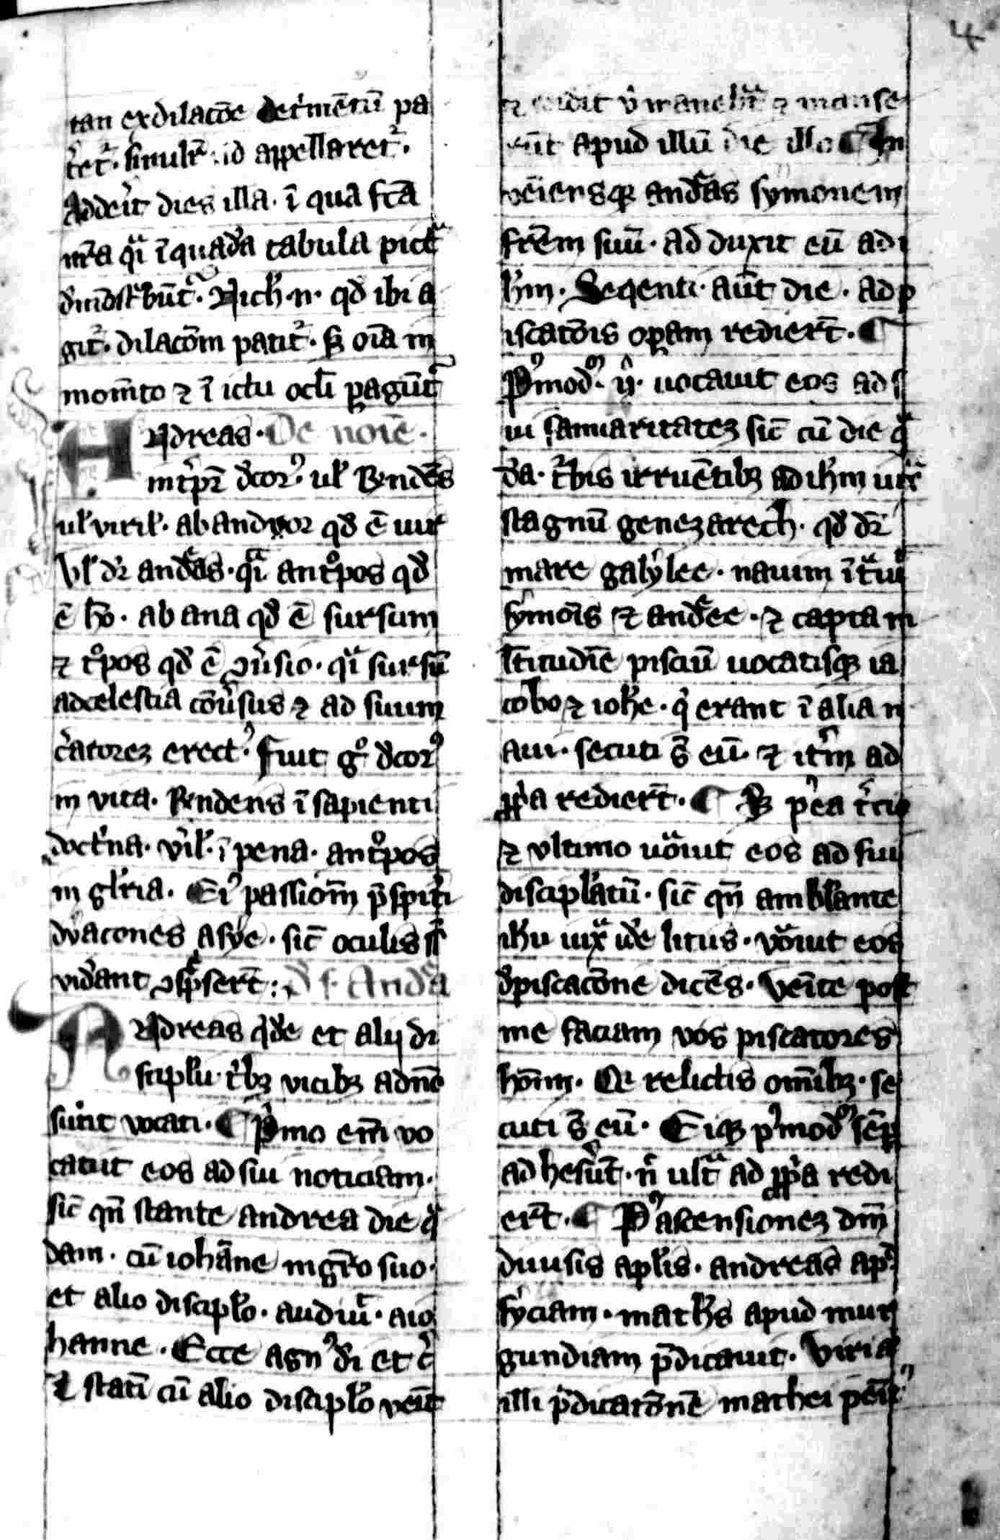 4
tan ex dilacōe det̓mētū pa
tet̓. simulr̄ id appellaret̓.
Addeīt dies illa. ī qua fc̄a
nr̄a q̄i ī quadā tabula pict̄
Nich̓. n̄. qd̓ ibi a
git̓. dilacōm patit̓. sꝫ oīa in
momn̄to ⁊ ī ictu oclī pagūt̄
Andreas. De noīe.
int̓p̄r dcor᷒. ul̓ Rn̄dēs
ul̓ viril̓. ab andor qd̓ ē uir
Vl̓ dr̄ andēas. q̄i ant̊pos qd̓
ē hō. ab ana qd̓ ē sursum
⁊ t̊pos qd̓ ē ꝯūsio. q̄i sursū
ad celestia cōūsus ⁊ ad suum
c̄atoreꝫ erect᷒. fuit g̊ dcor᷒
in vita. Rn̄dens ī sapienti
doct̓na. vīl̓. ī pena. ant̊pos
in gl̓ria. Ei᷒ passiōm p̄spit̓i
dyacones asye. sic̄ oculis
vidānt ꝯsp̄sert̄: d̓ s. Andā
Andreas qdē et alij di
scipuli t̓bꝫ vicibꝫ a dn̄o
sūnt vocati. ¶ P̓mo em̄ vo
cauit eos ad sui noticiam.
sic̄ qn̄ stante andrea die q̄
dam. cū iohāne mgr̄o suo.
et alio discipl̓o. audiuī. a io
hanne. Ecce agn᷒ dī et c̄
Et statī cū alio discipl̓o venīt
⁊ uidit ⁊ manse
rūt apud illū die illo ¶ In
vēiensqꝫ andēas symonem
frēm suū. ad duxit eū ad i
hm̄. Seqenti. aūt die. ad p
iscatōis opam rediert̄. ¶
P᷒modū. uocauit eos ad s
ui familiaritateꝫ sic̄ cū die q̄
dā. t̓bis irruētibꝫ ad ihm̄ iux̄
stagnū genezarech. qd̓ dr̄
mare galylee. nauim īt̓uī
symōis ⁊ andēe. ⁊ capta m
l̄titudīe pisciū uocatisqꝫ ia
cobo ⁊ iohe. q̓ erant ī alia n
aui. secuti s̄ eū. ⁊ it̓m ad
pp̓a rediert̄. ¶ Sꝫ p᷒ea t̓cio
⁊ vltimo uōuit eos ad sui
discipl̓atū. sic̄ qn̄ amblante
ihu iuxᷓ idē litus. vōuit eos
d̓ piscacōne dicēs. Venīte post
me faciam vos piscatores
homī. Qi relictis omībꝫ. se
cuti s̄ eū. Eiqꝫ p᷒modū sēp
ad heserūt. n̄ ultᷓ ad pp̓a redi
ert̄. ¶ P᷒ ascensioneꝫ dn̄i
diuisis apl̓is. andreas ap᷒
syciam. math᷒s apud mur
gundiam p̄dicauit. Viri a᷒
illi p̓dicatōnē mathei penit᷒